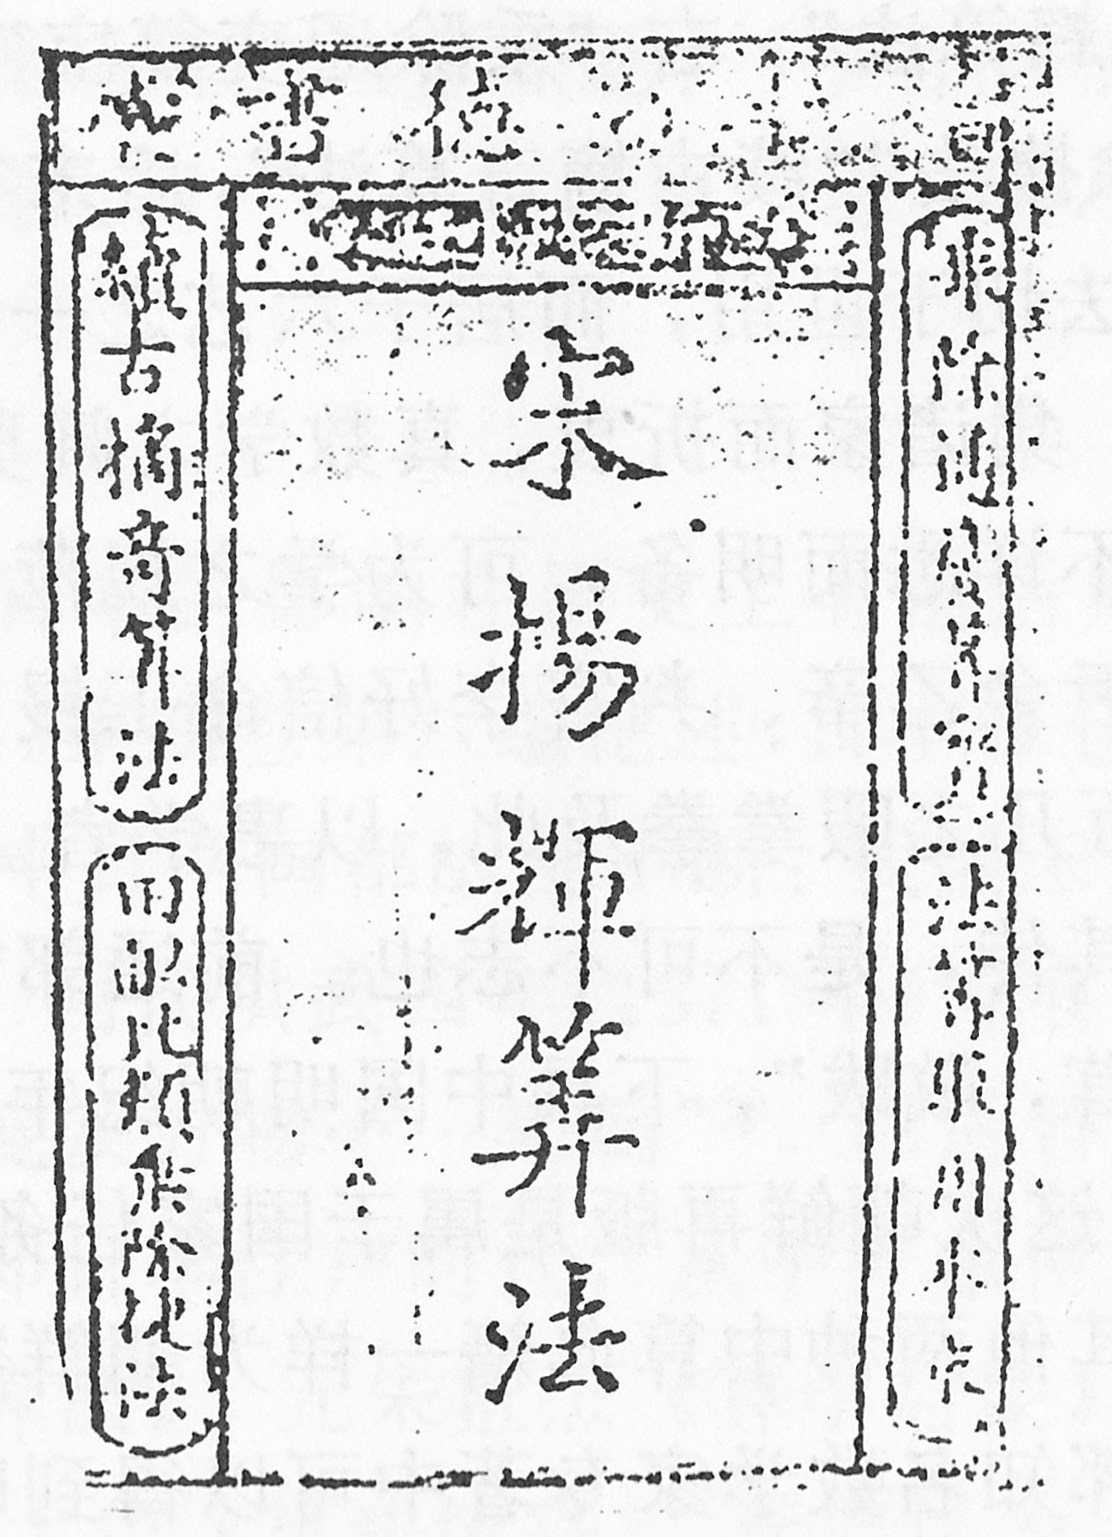 德書堂
乘除通變算寶
法算取用本末
宋楊輝筭法
續古摘奇筭法
田畝比類乘除捷法